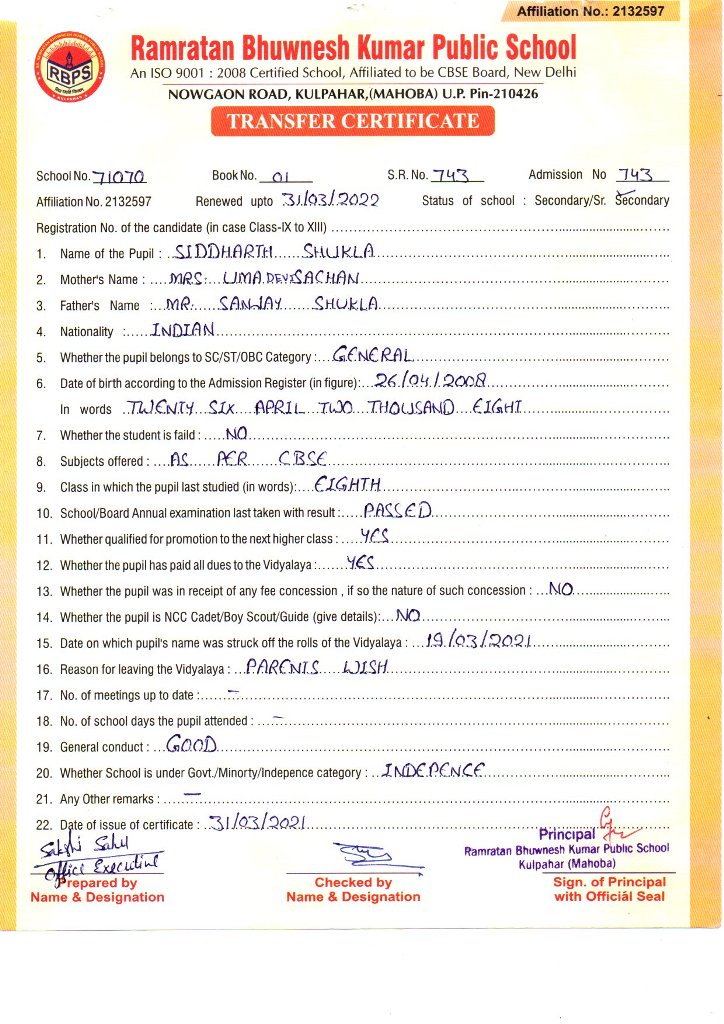 Affiliation No.: 2132597
RBPS
KULPAHAR
Ramratan Bhuwnesh Kumar Public School
An ISO 9001 : 2008 Certified School, Affiliated to be CBSE Board, New Delhi
NOWGAON ROAD, KULPAHAR,(MAHOBA) U.P. Pin-210426
TRANSFER CERTIFICATE
School No. 71070 Book No. 01 S.R. No. 743 Admission No 743
Affiliation No. 2132597 Renewed upto 31/03/2022 Status of school : Secondary/Sr. Secondary
Registration No. of the candidate (in case Class-IX to XIII)
1. Name of the Pupil : SIDDHARTH SHUKLA
2. Mother's Name : MRS. UMA DEVI SACHAN
3. Father's Name : MR. SANJAY SHUKLA
4. Nationality : INDIAN
5. Whether the pupil belongs to SC/ST/OBC Category : GENERAL
6. Date of birth according to the Admission Register (in figure): 26/04/2008
In words TWENTY SIX APRIL TWO THOUSAND EIGHT
7. Whether the student is faild : NO
8. Subjects offered : AS PER CBSE
9. Class in which the pupil last studied (in words): EIGHTH
10. School/Board Annual examination last taken with result : PASSED
11. Whether qualified for promotion to the next higher class : YES
12. Whether the pupil has paid all dues to the Vidyalaya : YES
13. Whether the pupil was in receipt of any fee concession , if so the nature of such concession : NO
14. Whether the pupil is NCC Cadet/Boy Scout/Guide (give details): NO
15. Date on which pupil's name was struck off the rolls of the Vidyalaya : 19/03/2021
16. Reason for leaving the Vidyalaya : PARENTS WISH
17. No. of meetings up to date : –
18. No. of school days the pupil attended : –
19. General conduct : GOOD
20. Whether School is under Govt./Minorty/Indepence category : INDEPENCE
21. Any Other remarks : –
22. Date of issue of certificate : 31/03/2021
Sakshi Sahu
Office Executive
Principal
Ramratan Bhuwnesh Kumar Public School
Kulpahar (Mahoba)
Prepared by Checked by Sign. of Principal
Name & Designation Name & Designation with Official Seal